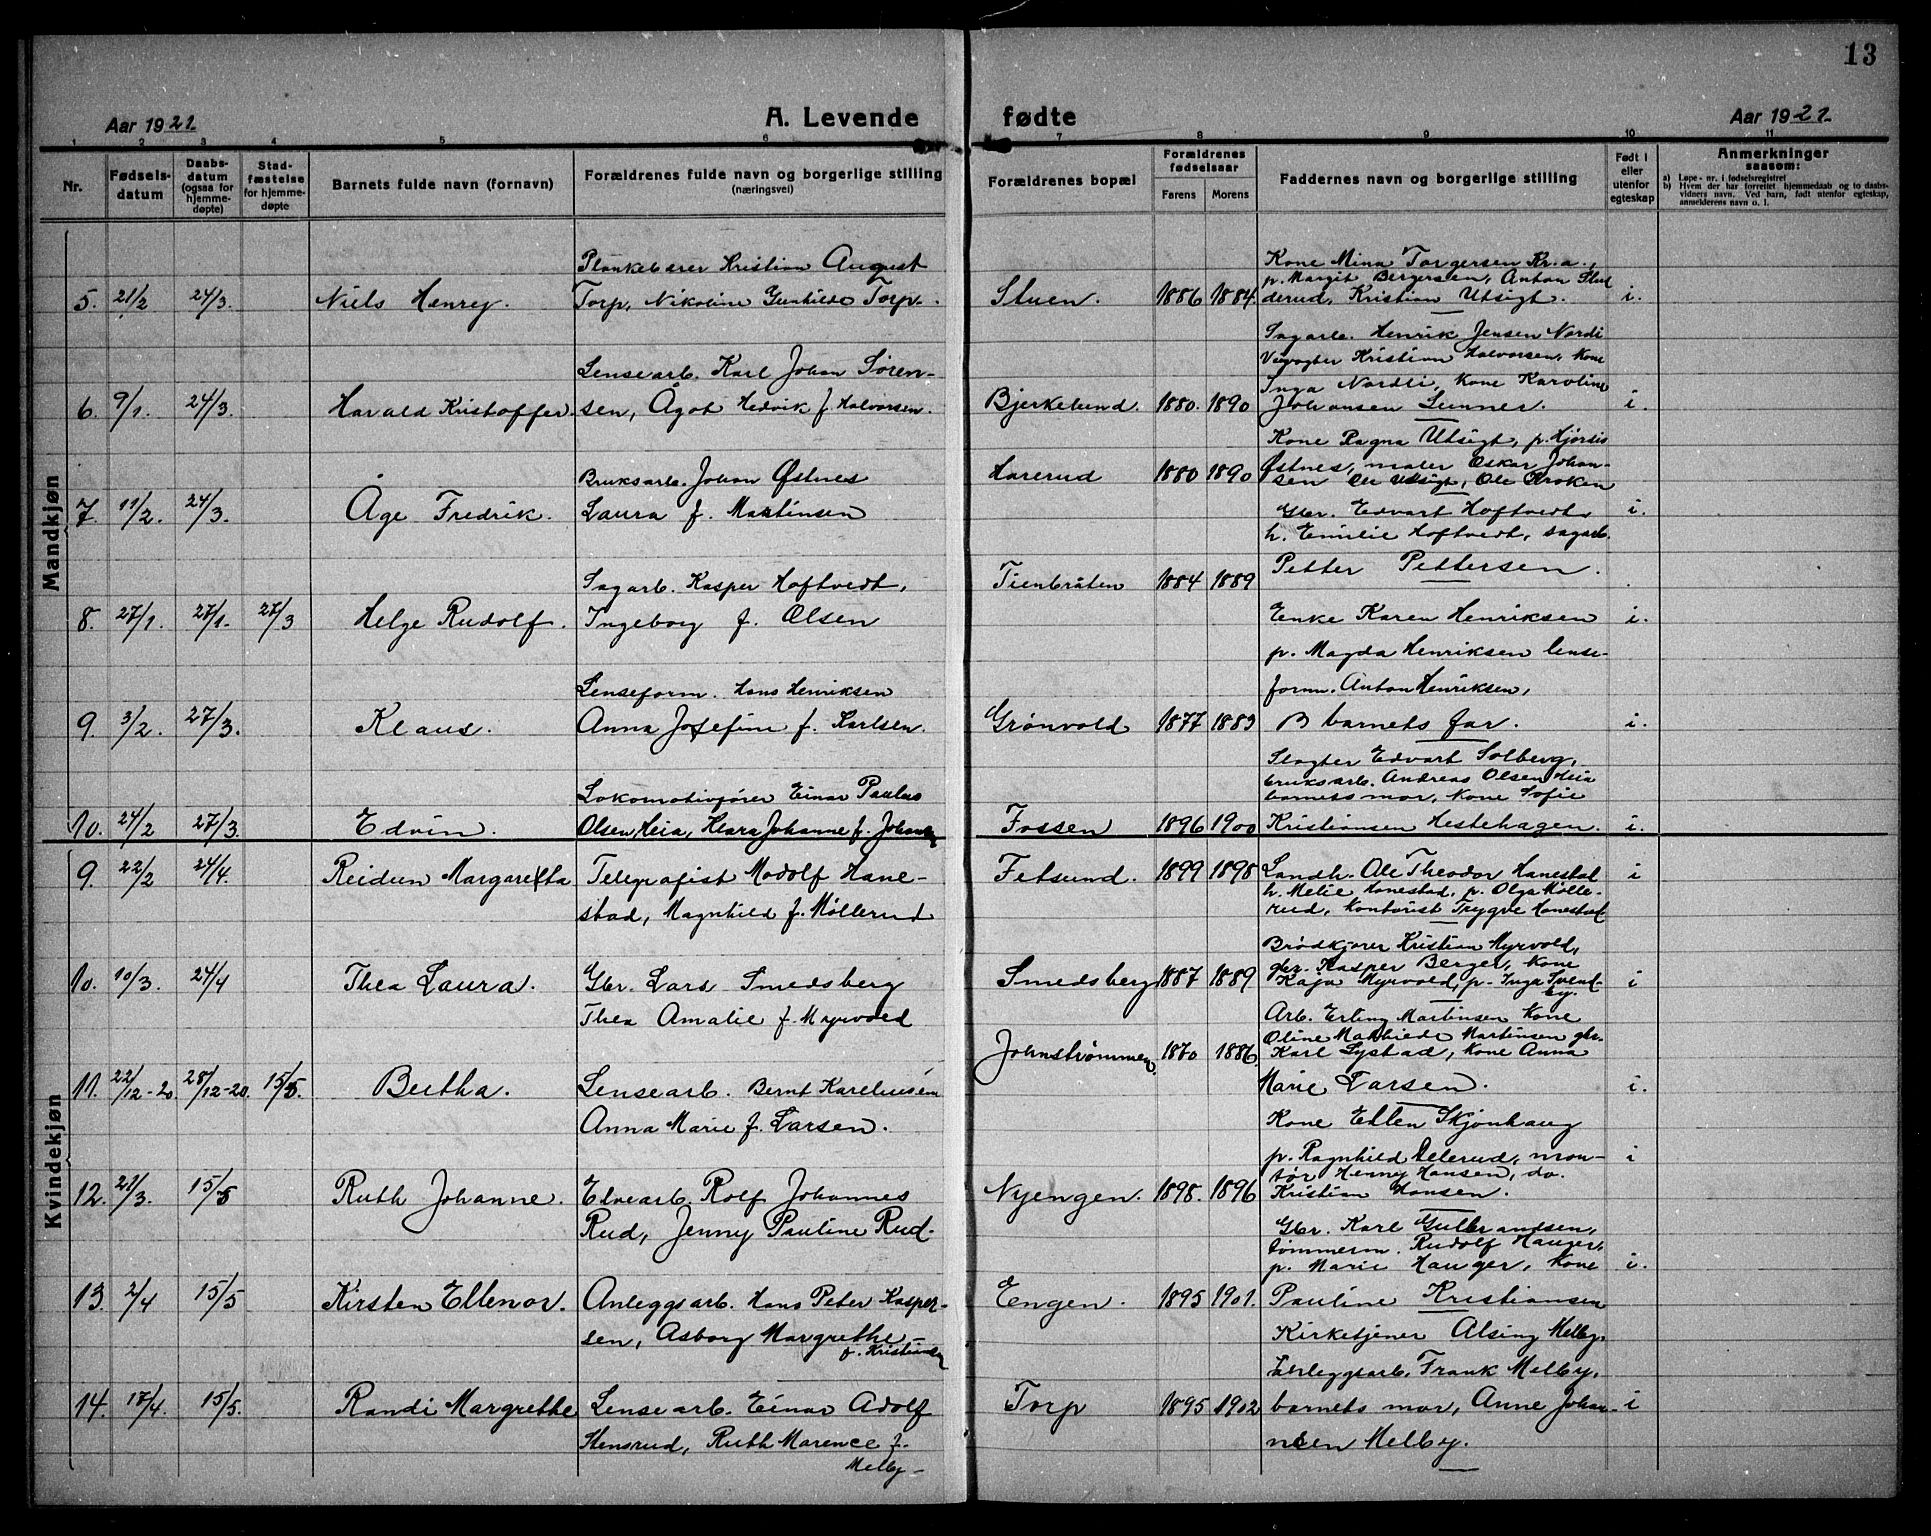 13
Aar 1921. A. Levende fødte Aar 1921.
1 2 3 4 5 6 7 8 9 10 11
Nr. Fødsels-datum Daabs-datum (ogsaa for hjemme-døpte) Stad-fæstelse for hjemme-døpte Barnets fulde navn (fornavn) Forældrenes fulde navn og borgerlige stilling (næringsvei) Forældrenes bopæl Forældrenes fødselsaar Farens Morens Faddernes navn og borgerlige stilling Født i eller utenfor egteskap Anmerkninger saasom: a) Løpe-nr. i fødselsregistret b) Hvem der har forrettet hjemmedaab og to daabs-vidners navn. Ved barn, født utenfor egteskap, anmelderens navn o. l.
Mandkjøn
5. 21/2 24/3. Niels Henry. Plankebærer Kristian August
Torp, Nikoline Gunhilde Torp. Stuen. 1886 1884. Kone Mina Torgersen Kr.a.,
p. Margit Bergersen, Anton Slud
derud, Kristian Utsigt. i.
6. 9/1. 24/3. Harald Kristoffer. Lensearb. Karl Johan Søren-
sen, Ågot Hedvik f. Halvorsen. Bjerkelund. 1880. 1890 Sagarb. Henrik Jensen Nordli
Veivogter Kristian Halvorsen, Kone
Inga Nordli, Kone Karoline
Johansen Sunner. i.
7. 11/2. 24/3. Åge Fredrik. Bruksarb. Johan Østnes
Laura f. Martinsen Harerud 1880 1890 Kone Ragna Utsigt, p. Hjørdis
Østnes, maler Oskar Johan-
sen Utsigt, Ole Kroken i.
8. 27/1. 27/1. 27/3 Helge Rudolf. Sagarb. Kasper Hoftvedt,
Ingeborg f. Olsen Tienbråten 1884 1889 Gbr. Edvart Hoftvedt,
h. Emilie Hoftvedt, sagarb.
Petter Pettersen. i.
9. 3/2. 27/3. Klaus. Lenseform. Hans Henriksen
Anna Josefine f. Karlsen. Grønvold 1877 1883 Enke Karen Henriksen
p. Magda Henriksen lense-
form. Anton Henriksen,
barnets far. i.
10. 24/2 27/3. Edvin. Lokomotivfører Einar Paulus
Olsen Heia, Klara Johanne f. Johansen Fossen 1896 1900 Slagter Edvart Solberg,
bruksarb. Andreas Olsen Heia
barnets mor, Kone Sofie
Kristiansen Hestehagen. i.
Kvindekjøn
9. 22/2 24/4. Reidun Margaretha Telegrafist Modolf Hane-
stad, Magnhild f. Møllerud Fetsund. 1899 1898 Landh. Ole Theodor Hanestad
h. Melie Hanestad, p. Olga Mølle-
rud, Kontorist Trygve Hanestad i
10. 10/3. 24/4 Thea Laura. Gbr. Lars Smedsberg
Thea Amalie f. Myrvold Smedsberg 1887 1889 Brødkjører Kristian Myrvold,
gbr. Kasper Berger, Kone
Kaja Myrvold, p. Inga Svend-
by. i
11. 22/12-20 28/12-20. 15/5. Bertha. Lensearb. Bernt Kareliusen
Anna Marie f. Larsen. Johnstrømmen. 1870 1886. Arb. Erling Martinsen Kone
Oline Mathilde Martinsen gbr.
Karl Systad, Kone Anna
Marie Larsen. i.
12. 21/3. 15/5 Ruth Johanne. Elvearb. Rolf Johannes
Rud, Jenny Pauline Rud. Nyengen. 1898. 1896 Kone Ellen Skjønhaug
p. Ragnhild Delerud, mon-
tør Henny Hansen, do.
Kristian Hansen. i
13. 2/4 15/5 Kirsten Ellenor. Anleggsarb. Hans Peter Kasper-
sen, Asborg Margrethe
f. Kristiansen Engen. 1895 1901. Gbr. Karl Gulbrandsen,
tømmerm. Rudolf Hauger,
p. Marie Hauger, Kone
Pauline Kristiansen i.
14. 17/4. 15/5. Randi Margrethe Lensearb. Einar Adolf
Stensrud, Ruth Marence f.
Melby Torp 1895 1902 Kirketjener Alsing Melby,
Frank Melby,
barnets mor, Anne Johan-
nesen Melby. i